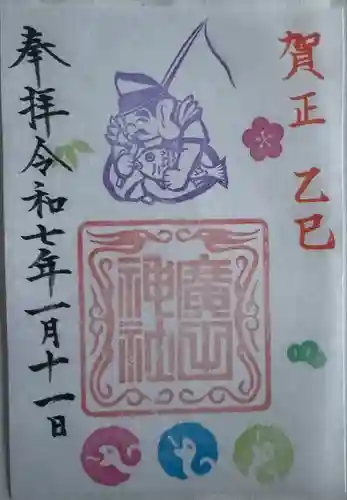 賀正 乙巳
廣田神社
奉拝 令和七年一月十一日